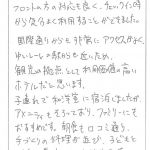 フロントの方の対応も良く、チェックイン時
から気分よく利用することができました。
周囲からも非常にアクセスがよく、
ゆいレールの駅からも近いため、
観光の拠点として利用価値の高い
ホテルだと思います。
子連れで和洋室に宿泊しましたが、
アメニティもそろっており、ファミリーにも
おすすめです。朝食も口コミ通り、
手づくりの料理が並び、子どもと